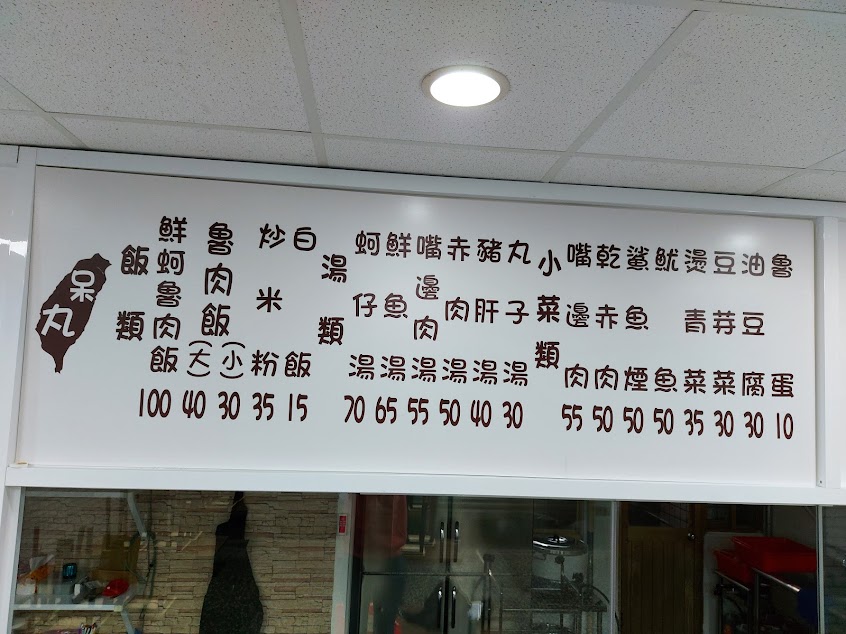 呆丸
飯類
鮮蚵魯肉飯 100
魯肉飯 (大) 40 (小) 30
炒米粉 35
白飯 15
湯類
蚵仔湯 70
鮮魚湯 65
嘴邊肉湯 55
赤肉湯 50
豬肝湯 40
丸子湯 30
小菜類
嘴邊肉 55
乾赤肉 50
鯊魚煙 50
魷魚 50
燙青菜 35
豆芽菜 30
油豆腐 30
魯蛋 10